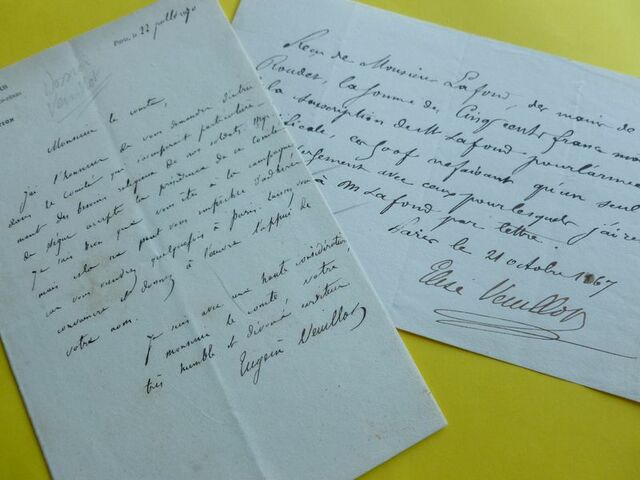 Paris, le 22 juillet 1870
Monsieur le comte,
J'ai l'honneur de vous demander d'entrer
dans le comité qui s'occupera particulière-
ment des besoins religieux de nos soldats. Mgr
de Ségur accepte la présidence de ce comité.
Je sais bien que vous êtes à la campagne
mais cela ne peut vous empêcher d'adhérer
car vous viendrez quelquefois à Paris
convaincre et donnez à l'œuvre l'appui de
votre nom.
Je suis avec une haute considération
monsieur le comte, votre
très humble et dévoué serviteur
Eugène Veuillot
Reçu de Monsieur Lafond, des mains de
la somme de Cinq cents francs
à la souscription de M Lafond pour l'armée
qu'un seul
avec ceux pour lesquels j'ai
à M Lafond par lettre.
Paris le 21 octobre 1867
Elise Veuillot